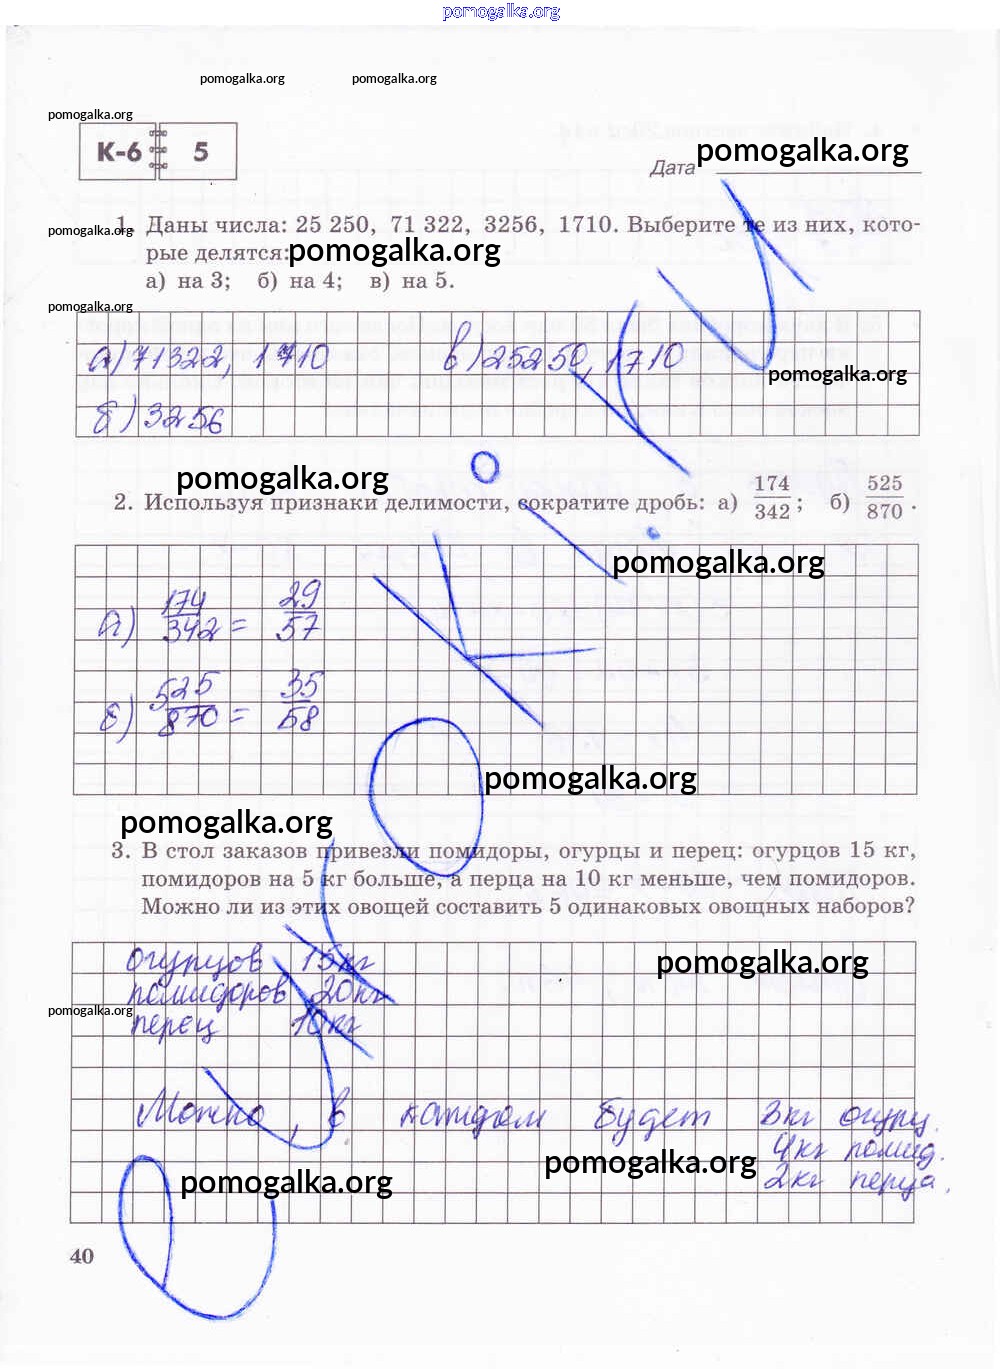 pomogalka.org
pomogalka.org pomogalka.org
pomogalka.org
К-6 5
Дата pomogalka.org
1. Даны числа: 25 250, 71 322, 3256, 1710. Выберите те из них, кото-
pomogalka.org
рые делятся: pomogalka.org
а) на 3; б) на 4; в) на 5.
pomogalka.org
а) 71322, 1710 в) 25250, 1710
pomogalka.org
б) 3256
pomogalka.org
2. Используя признаки делимости, сократите дробь: а) 174/342; б) 525/870.
pomogalka.org
а) 174/342 = 29/57
б) 525/870 = 35/58
pomogalka.org
pomogalka.org
3. В стол заказов привезли помидоры, огурцы и перец: огурцов 15 кг,
помидоров на 5 кг больше, а перца на 10 кг меньше, чем помидоров.
Можно ли из этих овощей составить 5 одинаковых овощных наборов?
огурцов 15кг
pomogalka.org
помидоров 20кг
pomogalka.org
перец 10кг
Можно, в каждом будет 3кг огурц.
4кг помид.
pomogalka.org
2кг перца.
pomogalka.org
40